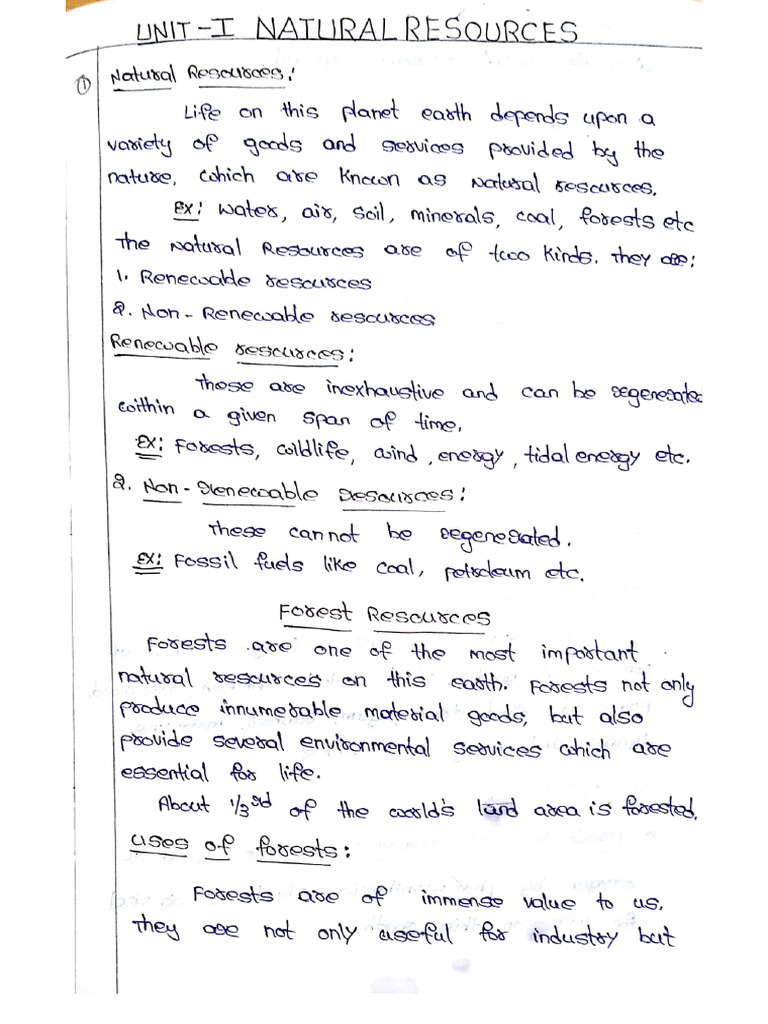 UNIT-I NATURAL RESOURCES
① Natural Resources:
Life on this planet earth depends upon a
variety of goods and services provided by the
nature, which are known as Natural resources.
Ex: water, air, soil, minerals, coal, forests etc
The Natural Resources are of two kinds. They are:
1. Renewable resources
2. Non-Renewable resources
Renewable resources:
Those are inexhaustive and can be regenerated
within a given span of time.
Ex: Forests, wildlife, wind, energy, tidal energy etc.
2. Non-Renewable resources:
These cannot be regenerated.
Ex: Fossil fuels like coal, petroleum etc.
Forest Resources
Forests are one of the most important
natural resources on this earth. Forests not only
produce innumerable material goods, but also
provide several environmental services which are
essential for life.
About 1/3rd of the world's land area is forested.
uses of forests:
Forests are of immense value to us.
They are not only useful for industry but